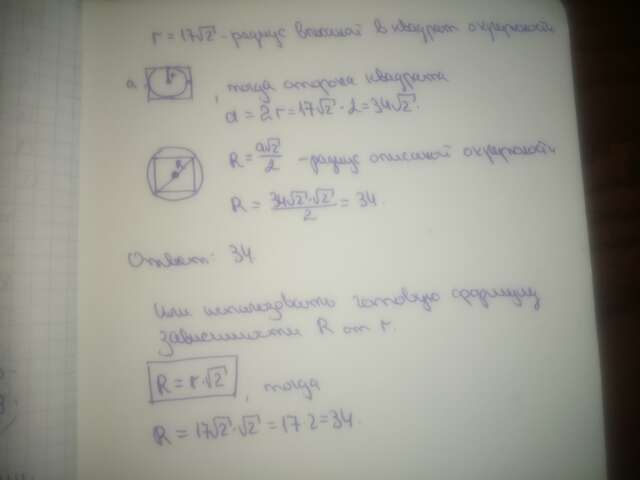 r = 17√2 - радиус вписаной в квадрат окружности
a
r
, тогда сторона квадрата
a = 2r = 17√2 · 2 = 34√2.
R
R = a√2/2 - радиус описаной окружности
R = 34√2·√2/2 = 34.
Ответ: 34
Или использовать готовую формулу
зависимости R от r.
R = r·√2 , тогда
R = 17√2·√2 = 17·2 = 34.